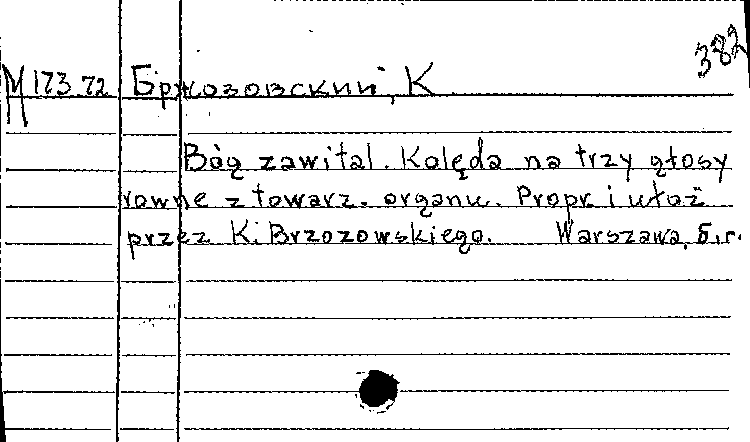 382
М 173.72 Бржозовский, К
Bóg zawitał. Kolęda na trzy głosy
rowne z towarz. organu. Propr. i ułoż
przez K. Brzozowskiego. Warszawa, б.г.